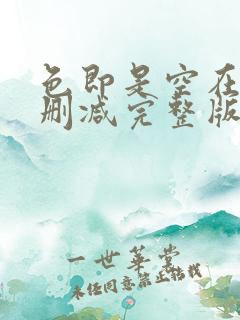 色即是空在
删减完整版
一世华裳
未经同意禁止转载